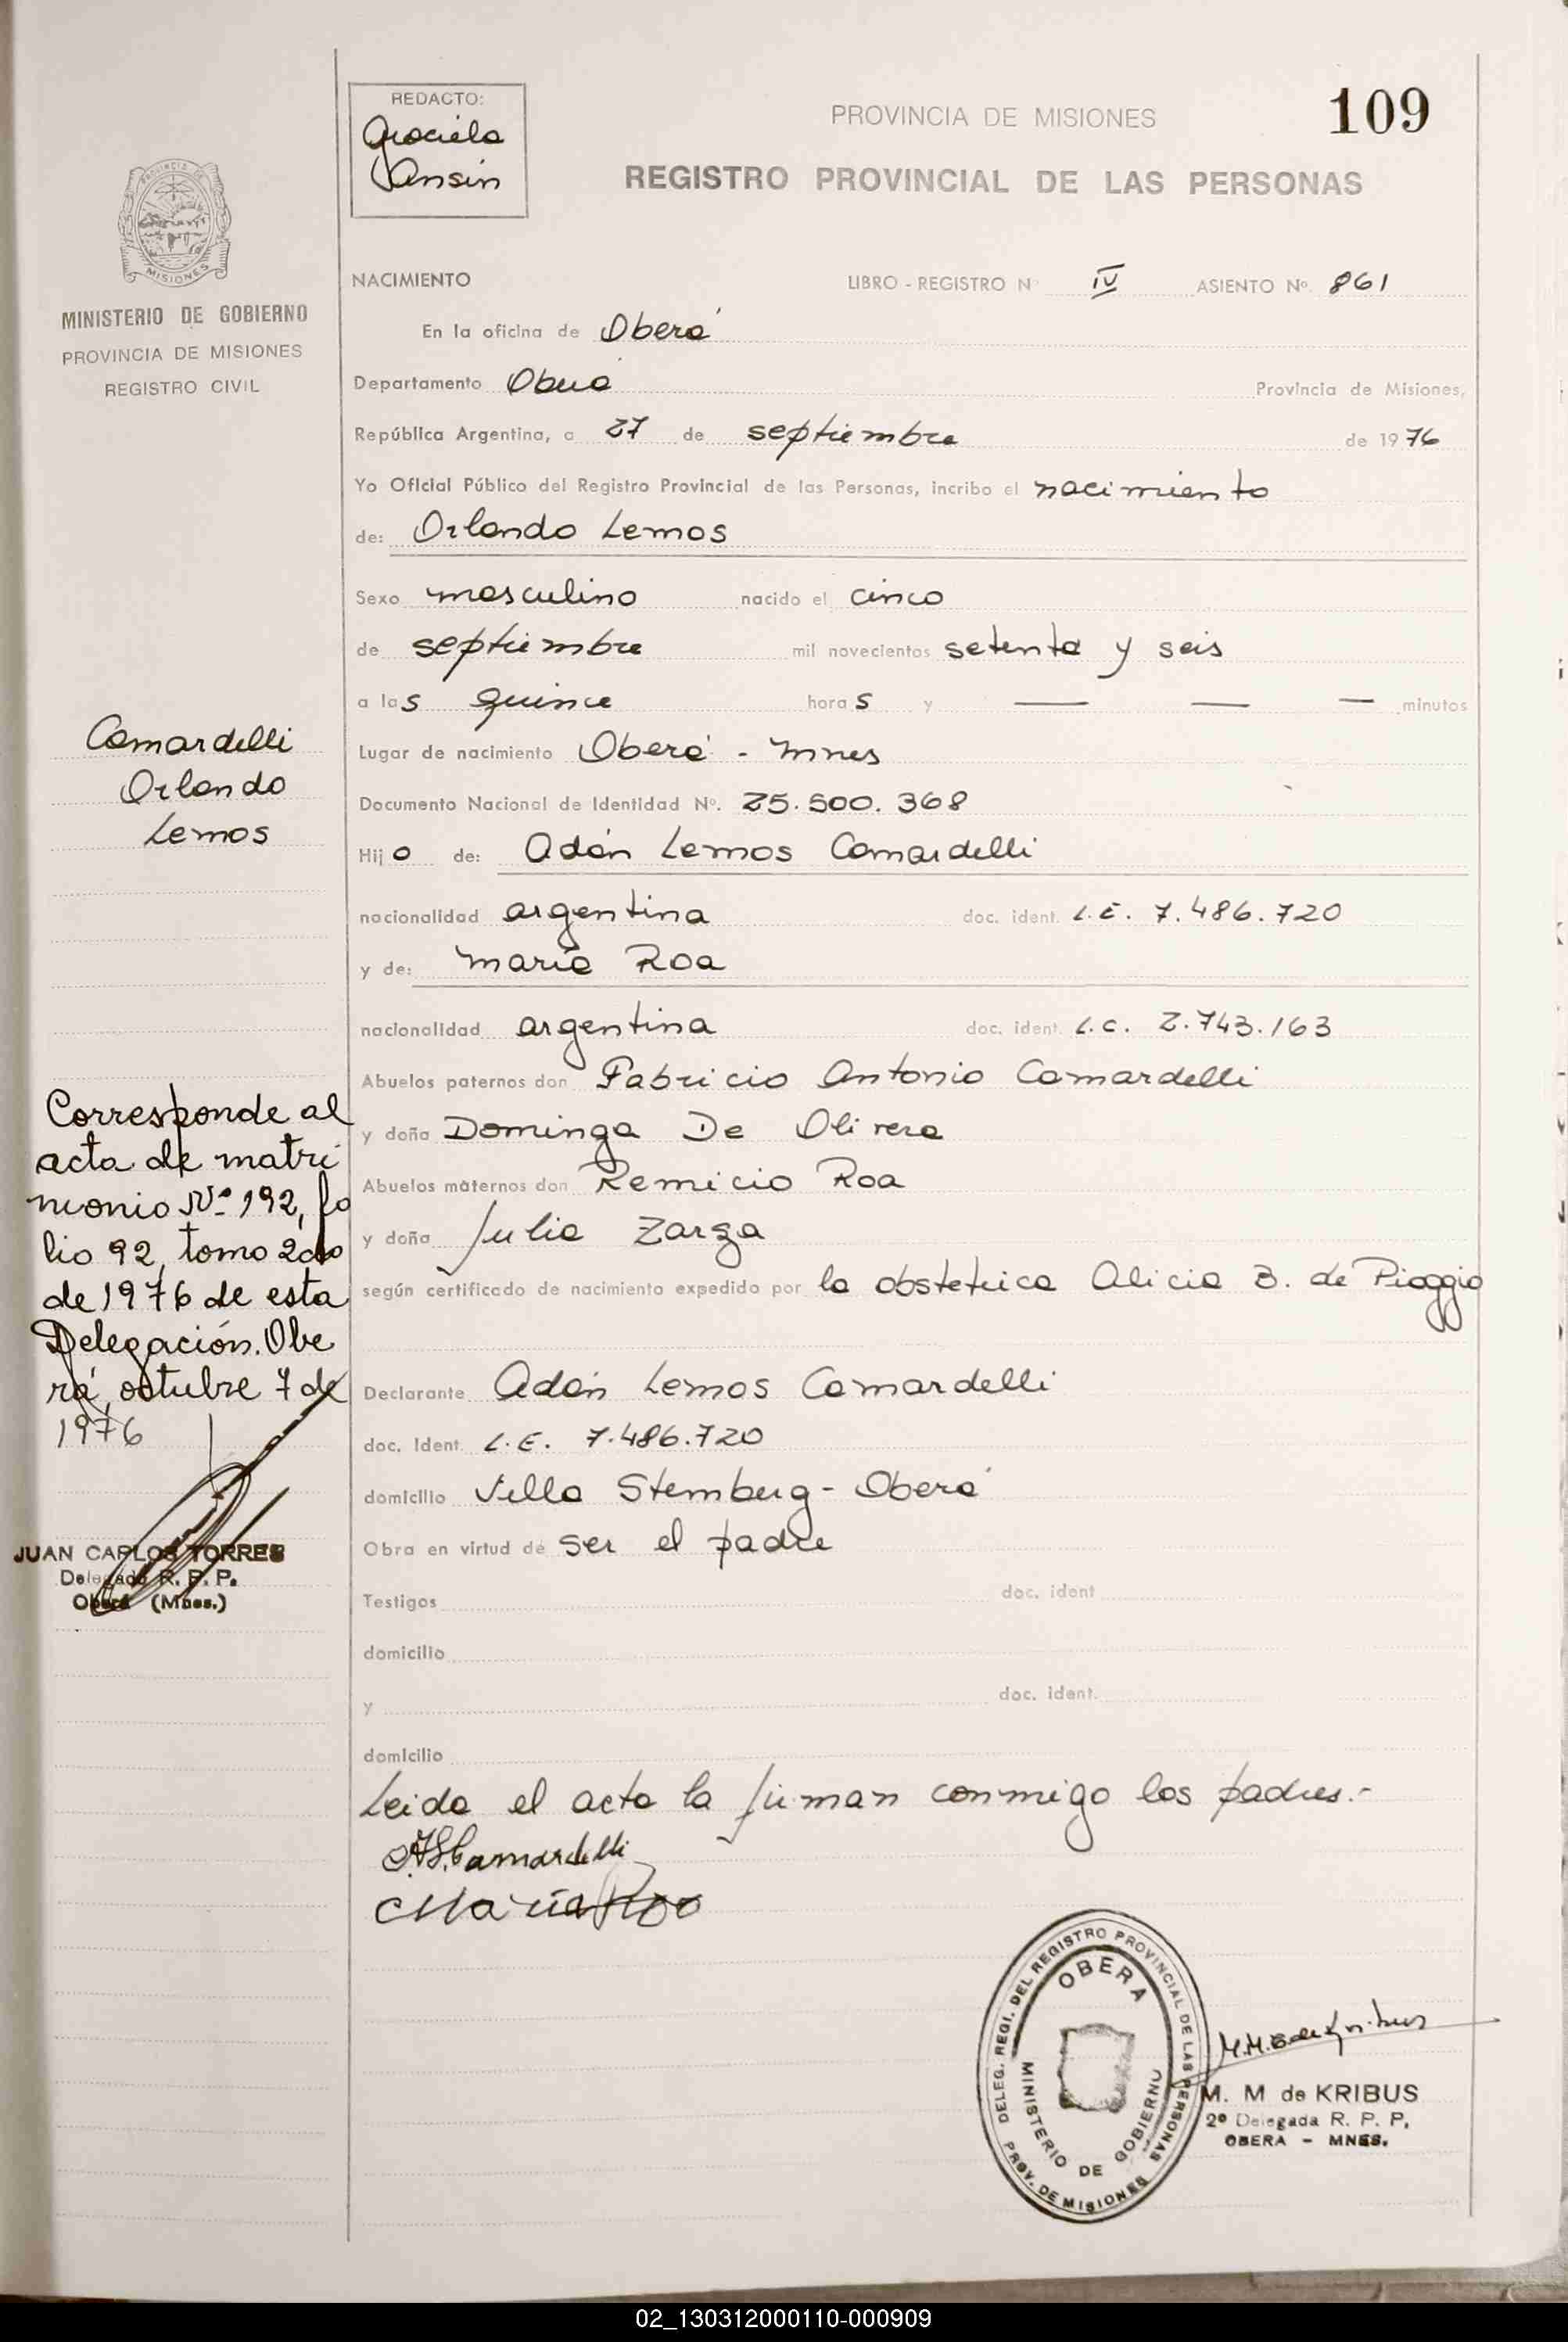 109
REDACTO:
Graciela
Ansin
PROVINCIA DE MISIONES
REGISTRO PROVINCIAL DE LAS PERSONAS
MISIONES
MINISTERIO DE GOBIERNO
PROVINCIA DE MISIONES
REGISTRO CIVIL
NACIMIENTO LIBRO - REGISTRO Nº IV ASIENTO Nº. 861
En la oficina de Oberá
Departamento Oberá Provincia de Misiones,
República Argentina, a 27 de septiembre de 1976
Yo Oficial Público del Registro Provincial de las Personas, incribo el nacimiento
de: Orlando Lemos
Sexo masculino nacido el cinco
de septiembre mil novecientos setenta y seis
a las quince horas y — — — minutos
Lugar de nacimiento Oberá - Mnes
Documento Nacional de Identidad Nº. 25.500.368
Hijo de: Adán Lemos Camardelli
nacionalidad argentina doc. ident. L.E. 7.486.720
y de: María Roa
nacionalidad argentina doc. ident. L.C. 2.743.163
Abuelos paternos don Fabricio Antonio Camardelli
y doña Dominga De Olivera
Abuelos maternos don Remicio Roa
y doña Julia Zarza
según certificado de nacimiento expedido por la obstetrica Alicia B. de Pioggio
Declarante Adán Lemos Camardelli
doc. Ident. L.E. 7.486.720
domicilio Villa Stemberg - Oberá
Obra en virtud de ser el padre
Testigos doc. ident
domicilio
y doc. ident.
domicilio
Leida el acta la firman conmigo los padres.-
A.L.Camardelli
María Roa
Camardelli
Orlando
Lemos
Corresponde al
acta de matri
monio Nº 192, fo
lio 92, tomo 2do
de 1976 de esta
Delegación. Obe
rá, octubre 7 de
1976
JUAN CARLOS TORRES
Delegado R. P. P.
Oberá (Mnes.)
DELEG. REGI. DEL REGISTRO PROVINCIAL DE LAS PERSONAS
OBERA
MINISTERIO DE GOBIERNO
PROV. DE MISIONES
M.M.B de Kribus
M. M de KRIBUS
2º Delegada R. P. P.
OBERA - MNES.
02_130312000110-000909